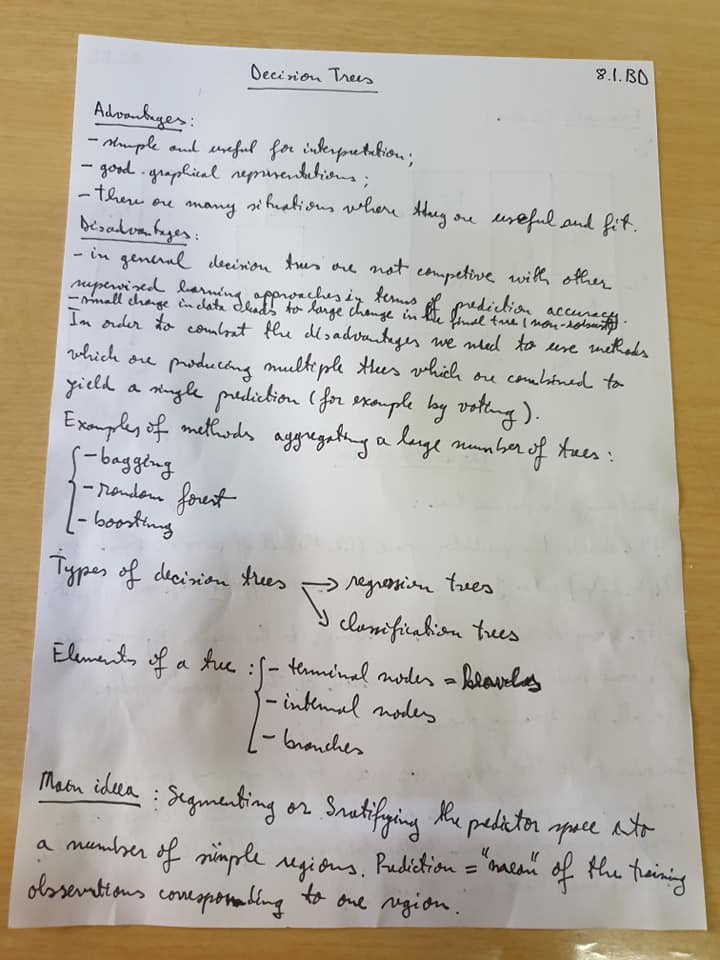 Decision Trees
8.1.BD
Advantages:
- simple and useful for interpretation;
- good graphical representations;
- there are many situations where they are useful and fit.
Disadvantages:
- in general decision trees are not competive with other
supervised learning approaches in terms of prediction accuracy.
- small change in data leads to large change in the final tree (non-robust)
In order to combat the disadvantages we need to use methods
which are producing multiple trees which are combined to
yield a single prediction (for example by voting).
Examples of methods aggregating a large number of trees:
- bagging
- random forest
- boosting
Types of decision trees → regression trees
↘ classification trees
Elements of a tree: - terminal nodes = leaves
- internal nodes
- branches
Main idea: Segmenting or Sratifying the predictor space into
a number of simple regions. Prediction = "mean" of the training
observations corresponding to one region.